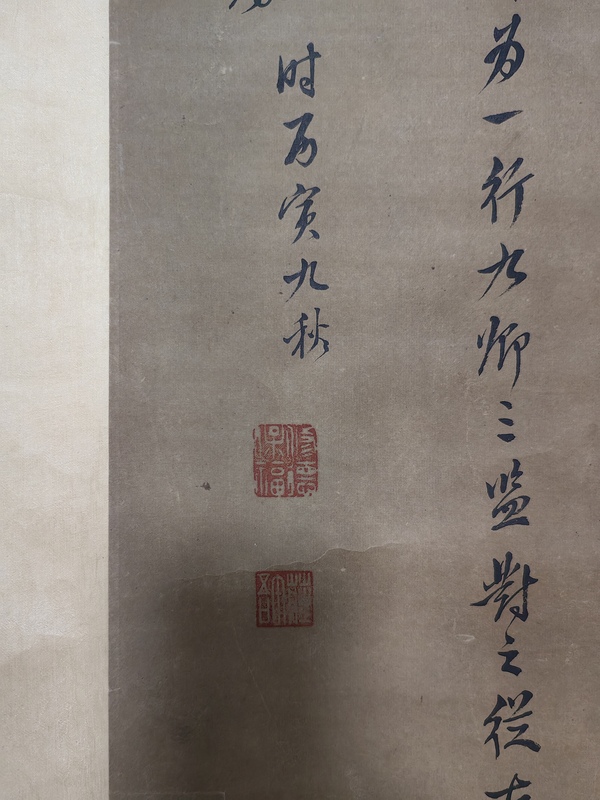 为一行九卿三监對之從
时丙寅九秋